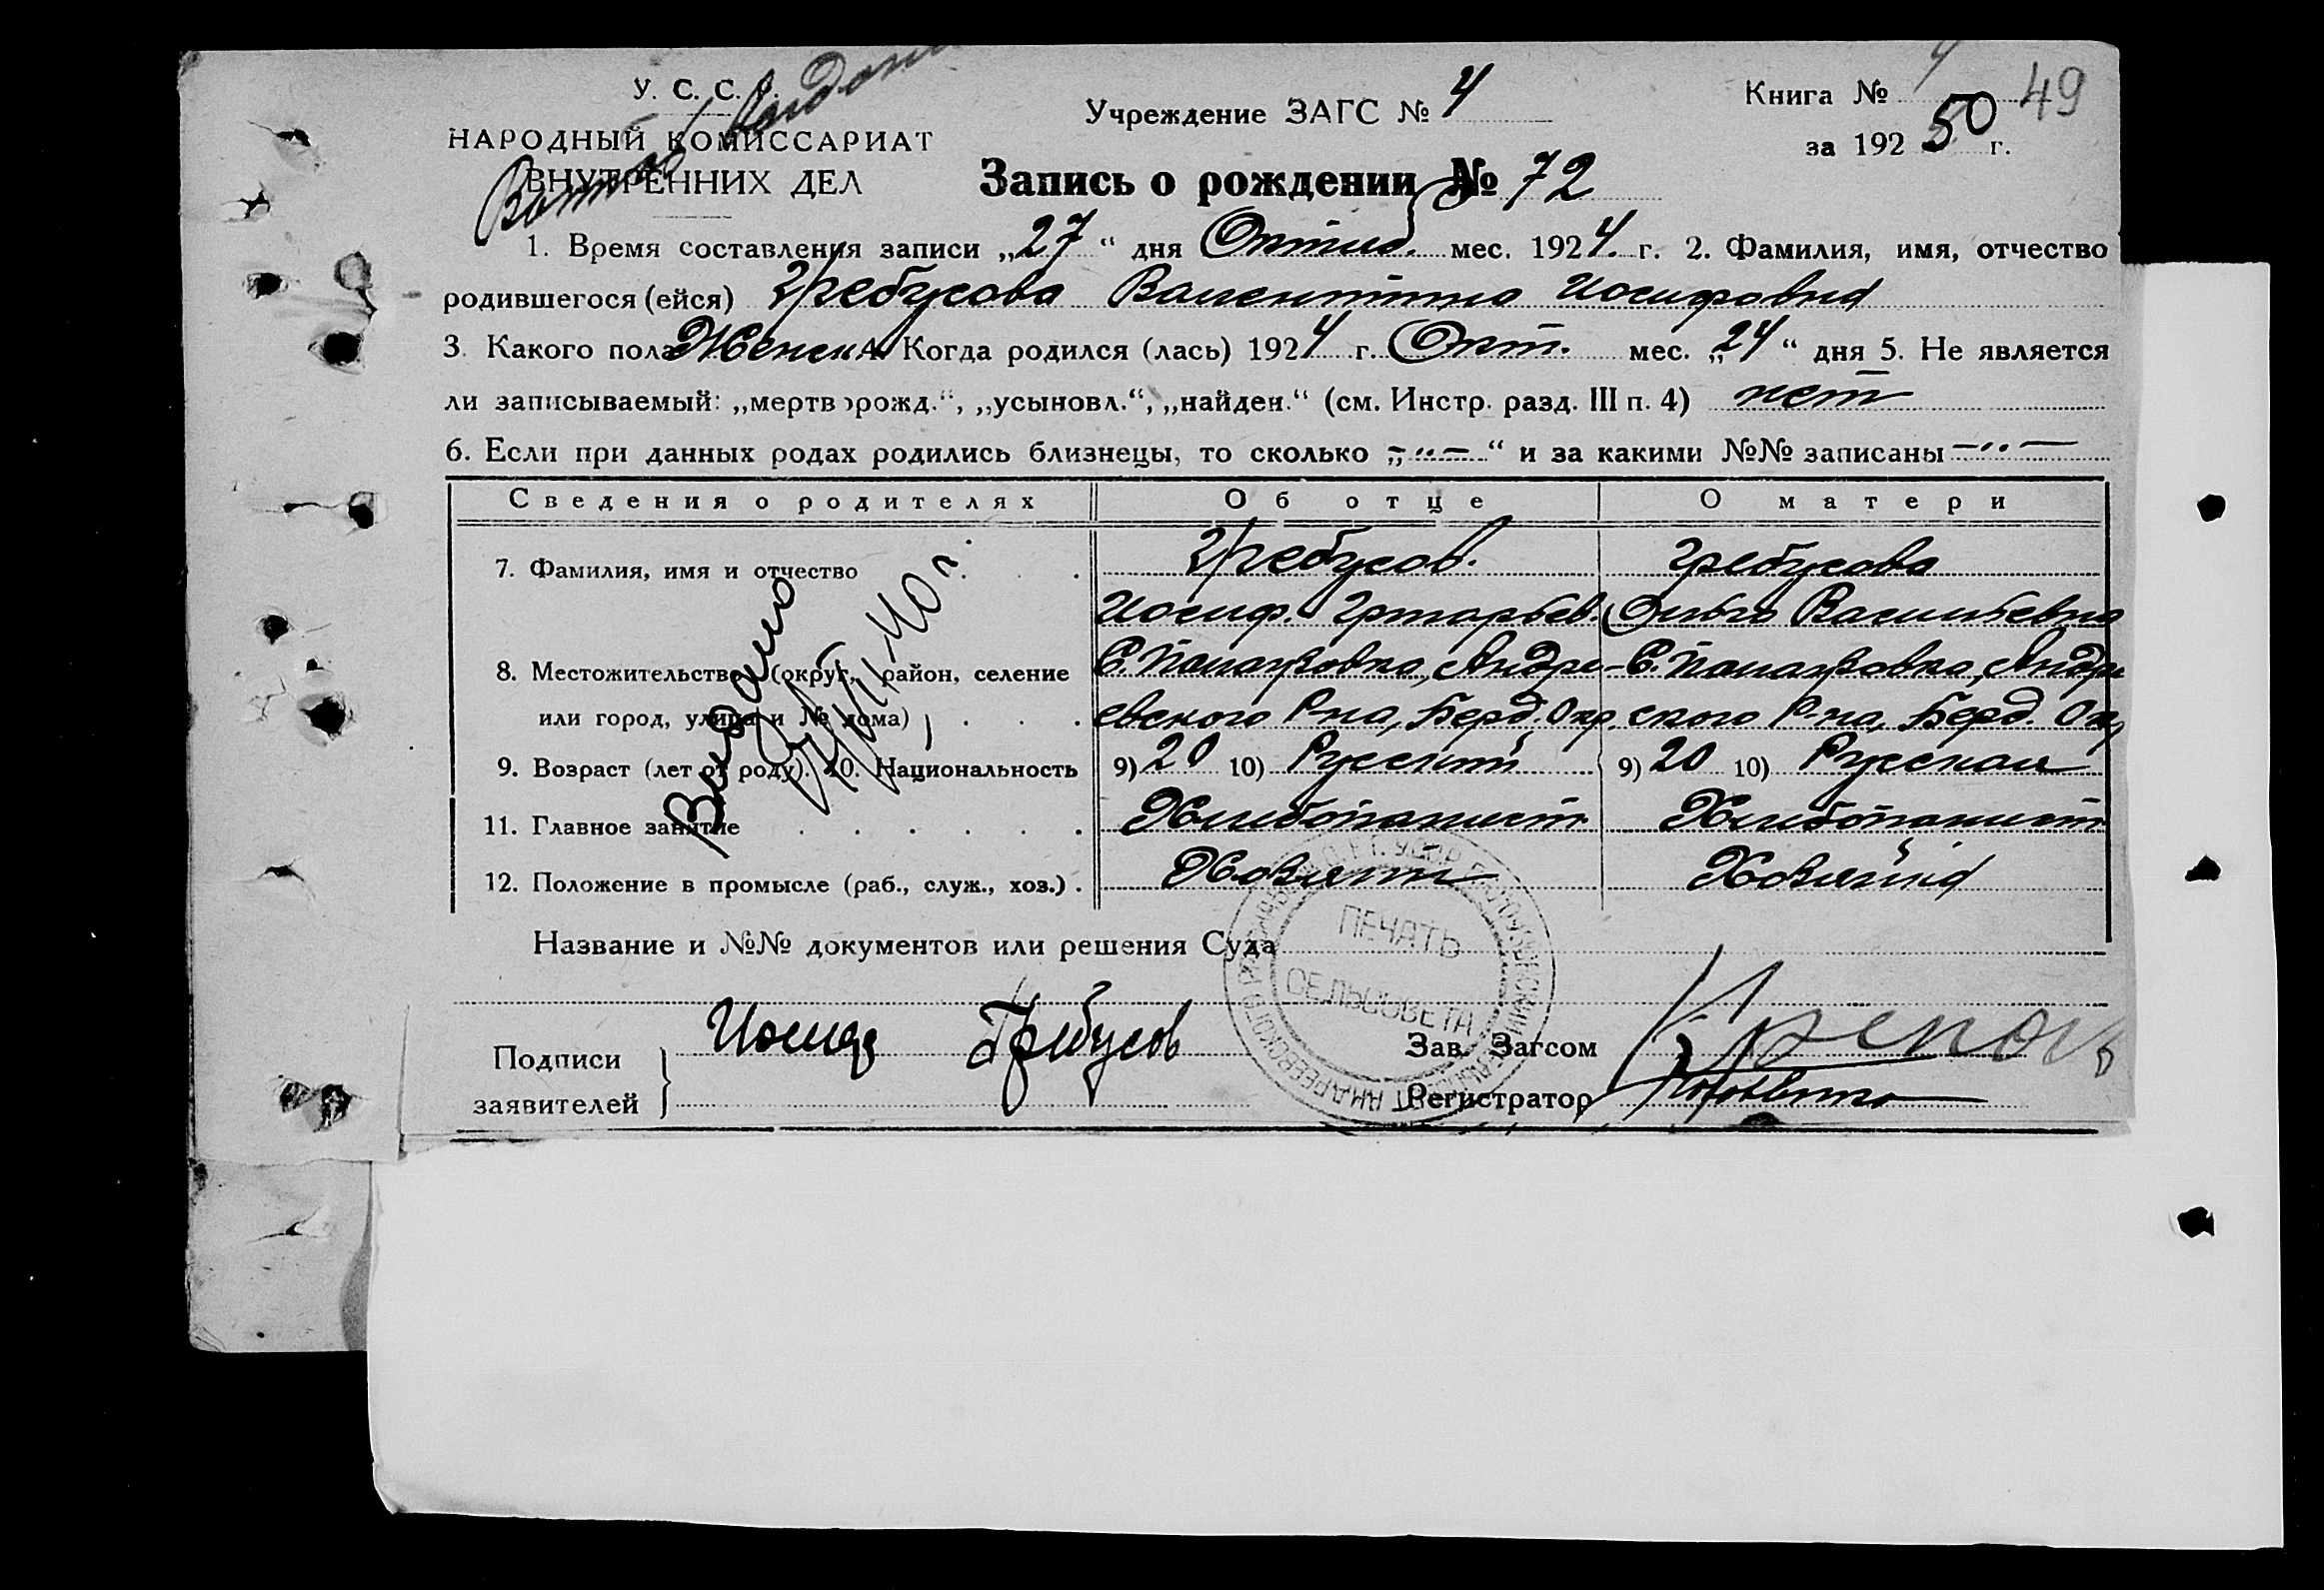 У. С. С. Р.
НАРОДНЫЙ КОМИССАРИАТ
ВНУТРЕННИХ ДЕЛ
Учреждение ЗАГС № 4
Книга № 49
за 192 г. 50
Запись о рождении № 72
1. Время составления записи „27“ дня мес. 1924 г. 2. Фамилия, имя, отчество
родившегося (ейся) Гребусова Валентина Иосифовна
3. Какого пола Женск 4. Когда родился (лась) 1924 г. Окт. мес. „24“ дня 5. Не является
ли записываемый: „мертворожд.“, „усыновл.“, „найден.“ (см. Инстр. разд. III п. 4) нет
6. Если при данных родах родились близнецы, то сколько „-"-“ и за какими №№ записаны -"-
Сведения о родителях Об отце О матери
7. Фамилия, имя и отчество . . . Гребусов. Гребусова
Иосиф. Васильевна
8. Местожительство (округ, район, селение С. Андре- С. Андре
или город, улица и № дома) . . . евского Р-на, Берд. Окр. ского Р-на, Берд. Окр
9. Возраст (лет от роду). 10. Национальность 9) 20 10) Русский 9) 20 10) Русская
11. Главное занятие . . . . . . Хлибопашит Хлибопашит
12. Положение в промысле (раб., служ., хоз.) . Хозяин Хозяйка
Выдано
40 г.
Название и №№ документов или решения Суда
ПЕЧАТЬ
СЕЛЬСОВЕТА
Подписи
заявителей
Иосиф Гребусов
Зав. Загсом
Регистратор